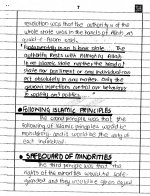 7
revolution was that the authority of the
whole state was in the hands of Allah as
Quaid-e-Azam said:
"Fundamentally in an Islamic state the
authority rests with Almighty Allah.
In an Islamic state neither the head of
state nor parliament or any individual can
act absolutely in any matter. Only the
Quranic injunctions control our behaviour
in society and politics."
FOLLOWING ISLAMIC PRINCIPLES
The second principle was that the
following of Islamic principles would be
mandatory and it would be the duty of
each individual.
SAFEGUARD OF MINORITIES
The third principle was that the
rights of minority would be safe
guarded and they would be given equal